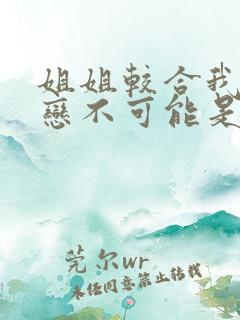 姐姐較合我
戀不可能是
莞尔wr
未经同意禁止转载